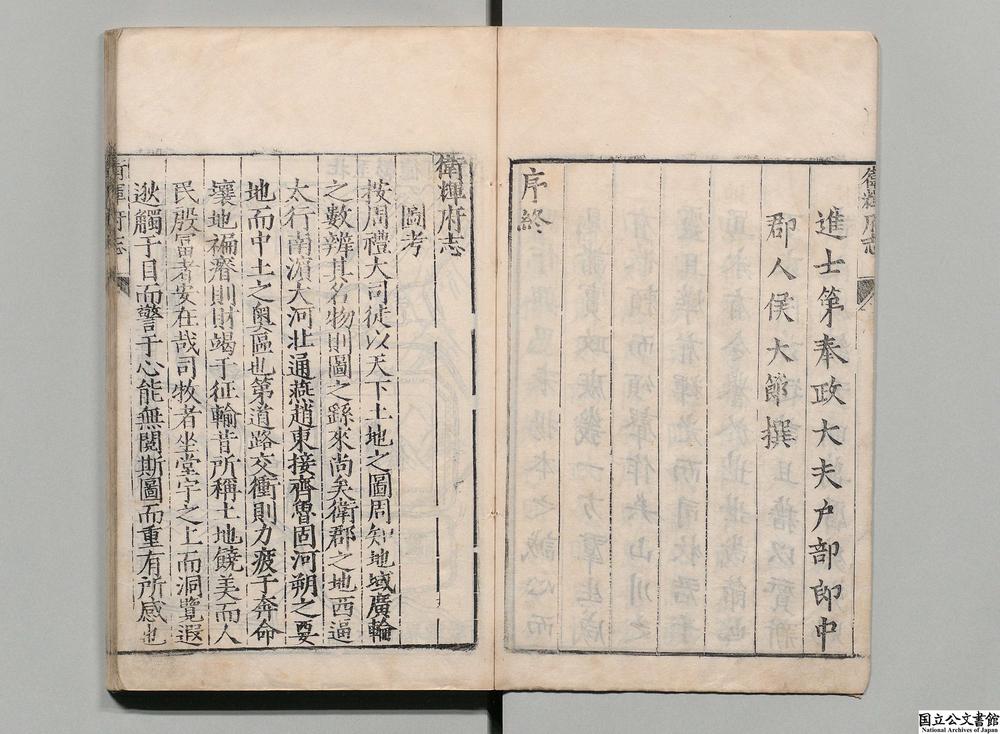 衛輝府志
進士第奉政大夫戶部郎中
郡人侯大節撰
序終
衛輝府志
圖考
按周禮大司徒以天下土地之圖周知地域廣輪
之數辨其名物則圖之繇來尚矣衛郡之地西逼
太行南濵大河北通燕趙東接齊魯固河朔之要
地而中土之奧區也第道路交衝則力疲于奔命
壤地褊瘠則財竭于征輸昔所稱土地饒美而人
民殷富者安在哉司牧者坐堂宇之上而洞覽遐
逖觸于目而警于心能無閱斯圖而重有所感也
衛輝府志
国立公文書館
National Archives of Japan